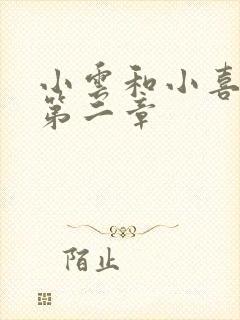 小雪和小喜
第二章
陌止